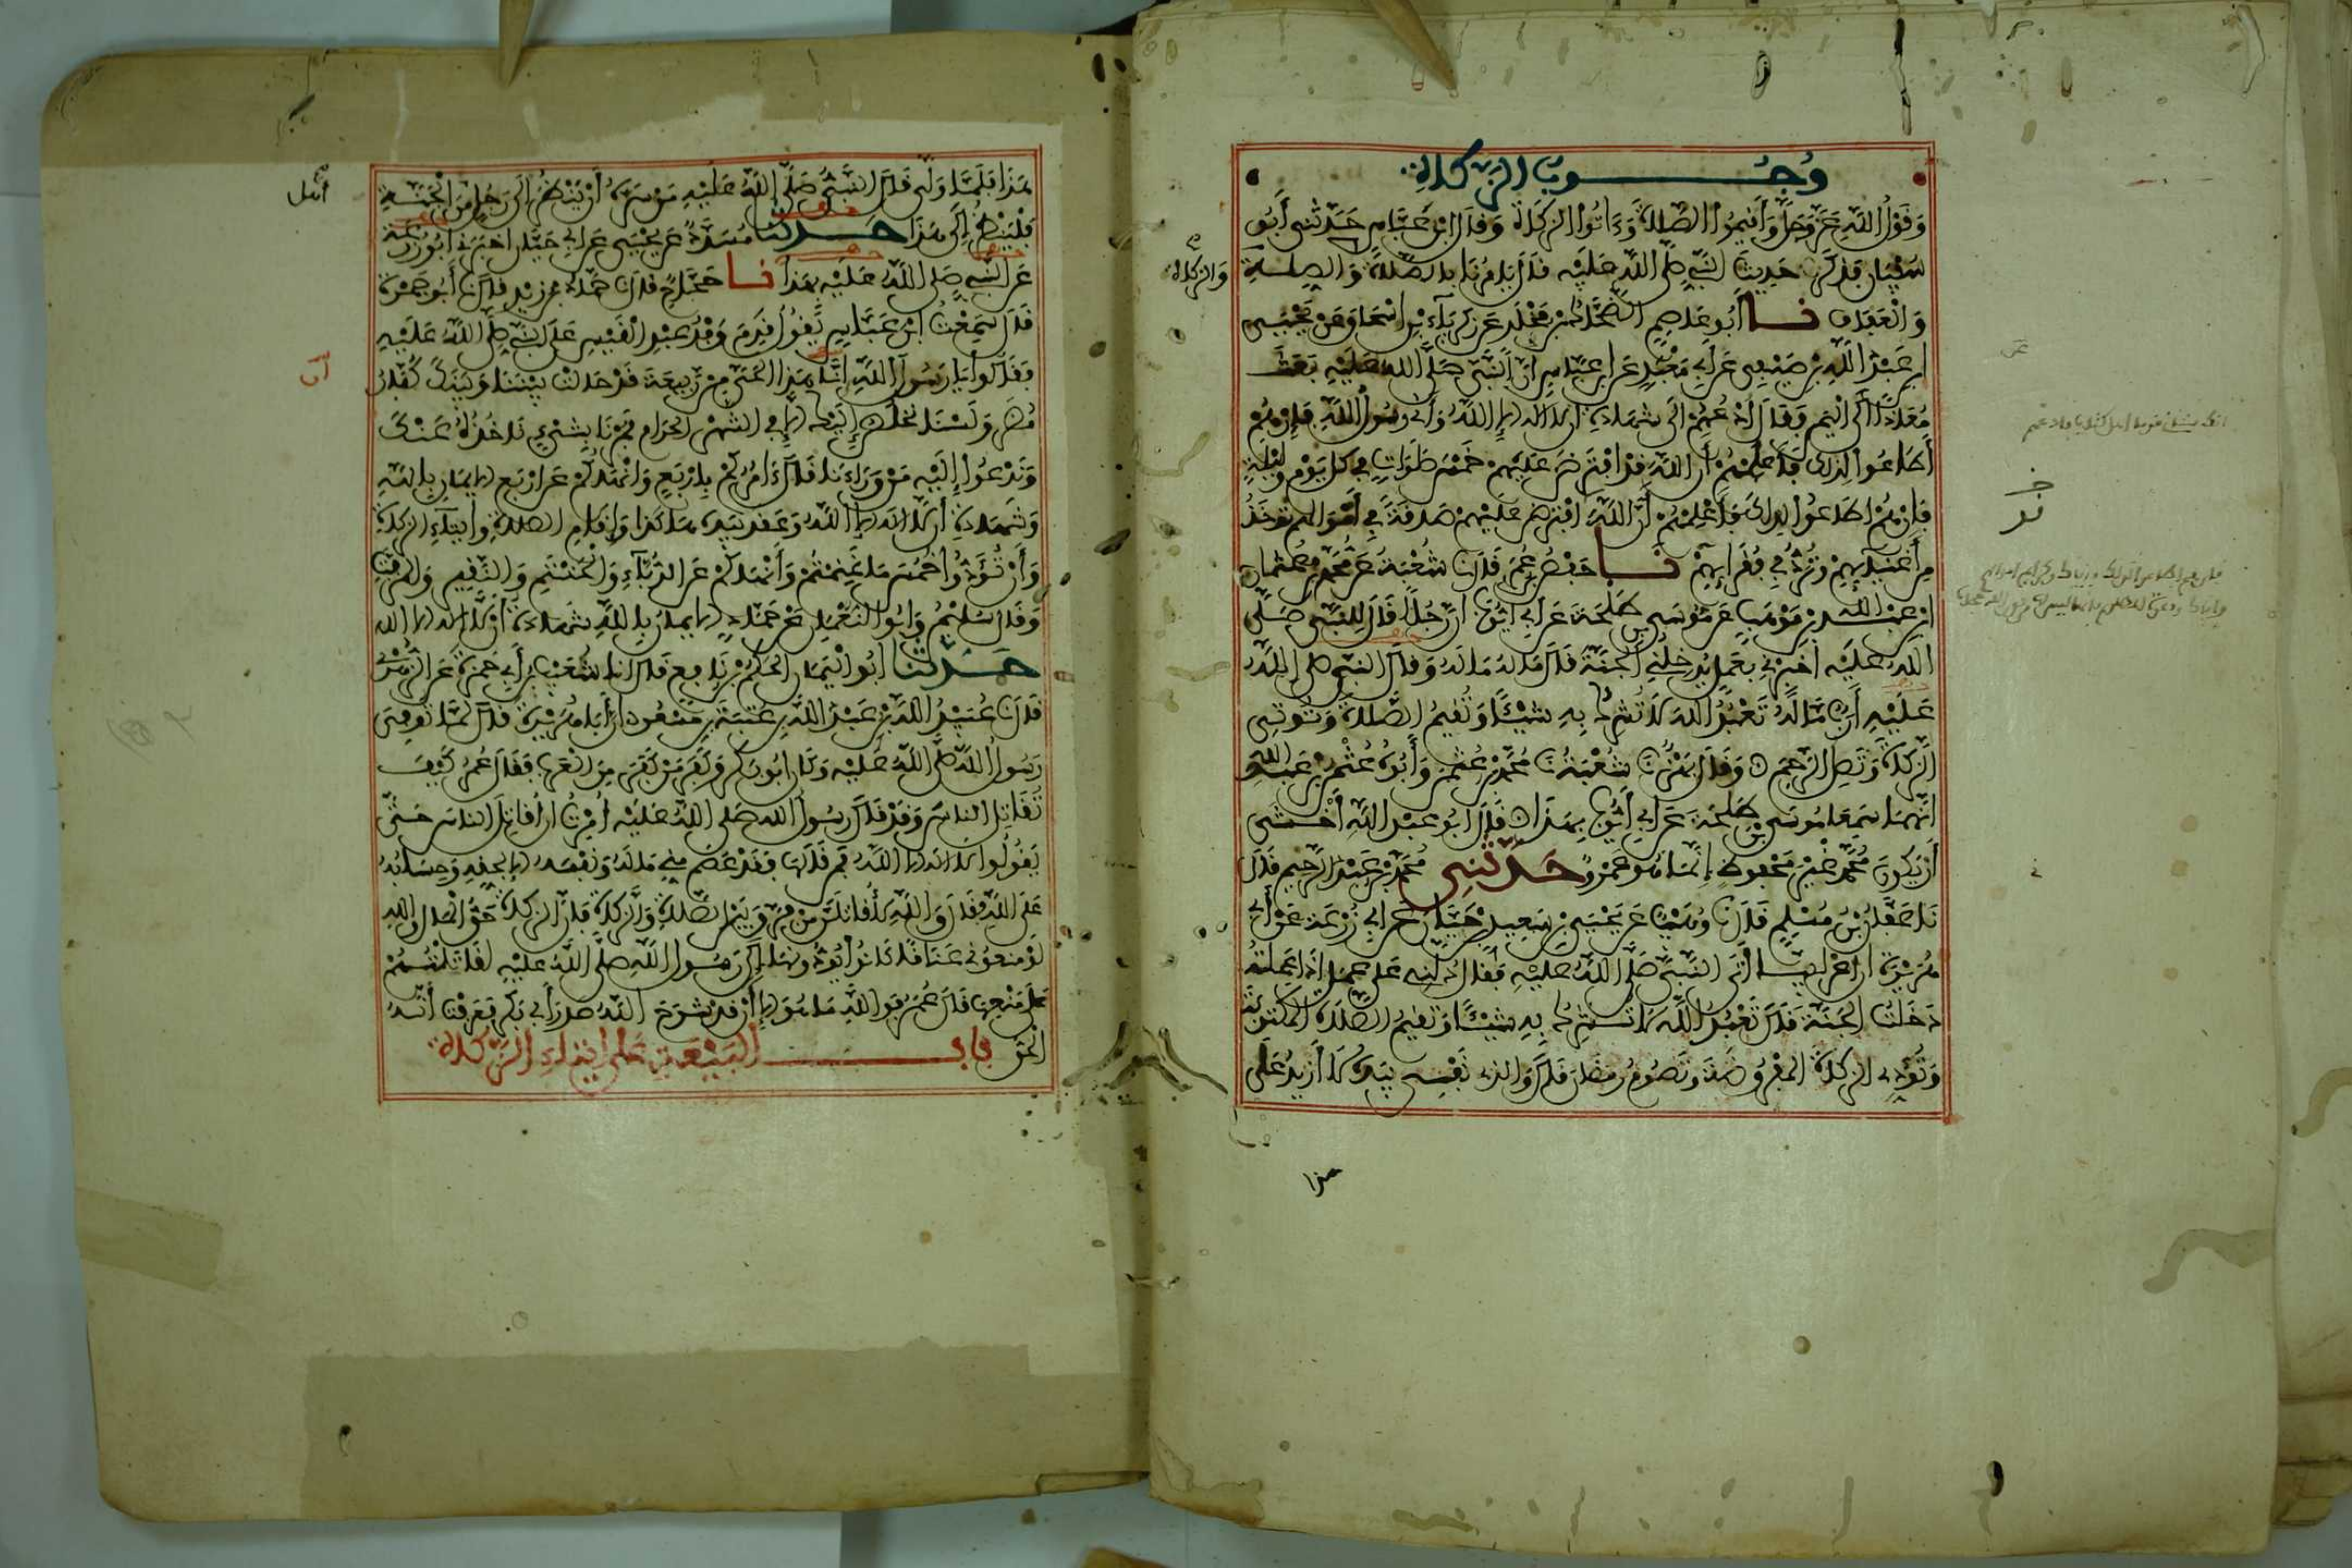 وُجُوبُ الزَّكَاةِ
وَقَوْلُ اللَّهِ عَزَّ وَجَلَّ وَأَقِيمُوا الصَّلَاةَ وَءَاتُوا الزَّكَاةَ وَقَالَ ابْنُ عَبَّاسٍ حَدَّثَنِي أَبُو
سُفْيَانَ فَذَكَرَ حَدِيثَ النَّبِيِّ صَلَّى اللَّهُ عَلَيْهِ قَالَ يَأْمُرُنَا بِالصَّلَاةِ وَالصِّلَةِ
وَالزَّكَاةِ
وَالْعَفَافِ نا أَبُو عَاصِمٍ الضَّحَّاكُ بْنُ مَخْلَدٍ عَنْ زَكَرِيَّاءَ بْنِ إِسْحَاقَ عَنْ يَحْيَى
بْنِ عَبْدِ اللَّهِ بْنِ صَيْفِيٍّ عَنْ أَبِي مَعْبَدٍ عَنِ ابْنِ عَبَّاسٍ أَنَّ النَّبِيَّ صَلَّى اللَّهُ عَلَيْهِ بَعَثَ
مُعَاذًا إِلَى الْيَمَنِ وَقَالَ ادْعُهُمْ إِلَى شَهَادَةِ أَنْ لَا إِلَهَ إِلَّا اللَّهُ وَأَنِّي رَسُولُ اللَّهِ فَإِنْ هُمْ
أَطَاعُوا لِذَلِكَ فَأَعْلِمْهُمْ أَنَّ اللَّهَ قَدِ افْتَرَضَ عَلَيْهِمْ خَمْسَ صَلَوَاتٍ فِي كُلِّ يَوْمٍ وَلَيْلَةٍ
فَإِنْ هُمْ أَطَاعُوا لِذَلِكَ فَأَعْلِمْهُمْ أَنَّ اللَّهَ افْتَرَضَ عَلَيْهِمْ صَدَقَةً فِي أَمْوَالِهِمْ تُؤْخَذُ
مِنْ أَغْنِيَائِهِمْ وَتُرَدُّ فِي فُقَرَائِهِمْ نا حَفْصُ بْنُ عُمَرَ قَالَ نا شُعْبَةُ عَنْ مُحَمَّدِ بْنِ عُثْمَانَ
بْنِ عَبْدِ اللَّهِ بْنِ مَوْهَبٍ عَنْ مُوسَى بْنِ طَلْحَةَ عَنْ أَبِي أَيُّوبَ أَنَّ رَجُلًا قَالَ لِلنَّبِيِّ صَلَّى
اللَّهُ عَلَيْهِ أَخْبِرْنِي بِعَمَلٍ يُدْخِلُنِي الْجَنَّةَ قَالَ مَا لَهُ مَا لَهُ وَقَالَ النَّبِيُّ صَلَّى اللَّهُ
عَلَيْهِ أَرَبٌ مَا لَهُ تَعْبُدُ اللَّهَ لَا تُشْرِكُ بِهِ شَيْئًا وَتُقِيمُ الصَّلَاةَ وَتُوتِي
الزَّكَاةَ وَتَصِلُ الرَّحِمَ وَقَالَ بَهْزٌ نا شُعْبَةُ نا مُحَمَّدُ بْنُ عُثْمَانَ وَأَبُوهُ عُثْمَانُ بْنُ عَبْدِ اللَّهِ
أَنَّهُمَا سَمِعَا مُوسَى بْنَ طَلْحَةَ عَنْ أَبِي أَيُّوبَ بِهَذَا قَالَ أَبُو عَبْدِ اللَّهِ أَخْشَى
أَنْ يَكُونَ مُحَمَّدٌ غَيْرَ مَحْفُوظٍ إِنَّمَا هُوَ عَمْرٌو حَدَّثَنِي مُحَمَّدُ بْنُ عَبْدِ الرَّحِيمِ قَالَ
نَا عَفَّانُ بْنُ مُسْلِمٍ قَالَ نا وُهَيْبٌ عَنْ يَحْيَى بْنِ سَعِيدِ بْنِ حَيَّانَ عَنْ أَبِي زُرْعَةَ عَنْ أَبِي
هُرَيْرَةَ أَنَّ أَعْرَابِيًّا أَتَى النَّبِيَّ صَلَّى اللَّهُ عَلَيْهِ فَقَالَ دُلَّنِي عَلَى عَمَلٍ إِذَا عَمِلْتُهُ
دَخَلْتُ الْجَنَّةَ قَالَ تَعْبُدُ اللَّهَ لَا تُشْرِكُ بِهِ شَيْئًا وَتُقِيمُ الصَّلَاةَ الْمَكْتُوبَةَ
وَتُؤَدِّي الزَّكَاةَ الْمَفْرُوضَةَ وَتَصُومُ رَمَضَانَ قَالَ وَالَّذِي نَفْسِي بِيَدِهِ لَا أَزِيدُ عَلَى
هذا
هَذَا فَلَمَّا وَلَّى قَالَ النَّبِيُّ صَلَّى اللَّهُ عَلَيْهِ مَنْ سَرَّهُ أَنْ يَنْظُرَ إِلَى رَجُلٍ مِنْ أَهْلِ الْجَنَّةِ
فَلْيَنْظُرْ إِلَى هَذَا حَدَّثَنَا مُسَدَّدٌ عَنْ يَحْيَى عَنْ أَبِي حَيَّانَ أَخْبَرَنِي أَبُو زُرْعَةَ
عَنِ النَّبِيِّ صَلَّى اللَّهُ عَلَيْهِ بِهَذَا نا حَجَّاجٌ قَالَ نا حَمَّادُ بْنُ زَيْدٍ قَالَ نا أَبُو جَمْرَةَ
قَالَ سَمِعْتُ ابْنَ عَبَّاسٍ يَقُولُ قَدِمَ وَفْدُ عَبْدِ الْقَيْسِ عَلَى النَّبِيِّ صَلَّى اللَّهُ عَلَيْهِ
فَقَالُوا يَا رَسُولَ اللَّهِ إِنَّا هَذَا الْحَيَّ مِنْ رَبِيعَةَ قَدْ حَالَتْ بَيْنَنَا وَبَيْنَكَ كُفَّارُ
مُضَرَ وَلَسْنَا نَخْلُصُ إِلَيْكَ إِلَّا فِي الشَّهْرِ الْحَرَامِ فَمُرْنَا بِشَيْءٍ نَأْخُذُهُ عَنْكَ
وَنَدْعُوا إِلَيْهِ مَنْ وَرَاءَنَا قَالَ ءَامُرُكُمْ بِأَرْبَعٍ وَأَنْهَاكُمْ عَنْ أَرْبَعٍ الْإِيمَانِ بِاللَّهِ
وَشَهَادَةِ أَنْ لَا إِلَهَ إِلَّا اللَّهُ وَعَقَدَ بِيَدِهِ هَاكَذَا وَإِقَامِ الصَّلَاةِ وَإِيتَاءِ الزَّكَاةِ
وَأَنْ تُؤَدُّوا خُمُسَ مَا غَنِمْتُمْ وَأَنْهَاكُمْ عَنِ الدُّبَّاءِ وَالْحَنْتَمِ وَالنَّقِيرِ وَالْمُزَفَّتِ
وَقَالَ سُلَيْمَانُ وَأَبُو النُّعْمَانِ عَنْ حَمَّادٍ الْإِيمَانُ بِاللَّهِ شَهَادَةُ أَنْ لَا إِلَهَ إِلَّا اللَّهُ
حَدَّثَنَا أَبُو الْيَمَانِ الْحَكَمُ بْنُ نَافِعٍ قَالَ أنا شُعَيْبُ بْنُ أَبِي حَمْزَةَ عَنِ الزُّهْرِيِّ
قَالَ نا عُبَيْدُ اللَّهِ بْنُ عَبْدِ اللَّهِ بْنِ عُتْبَةَ بْنِ مَسْعُودٍ أَنَّ أَبَا هُرَيْرَةَ قَالَ لَمَّا تُوُفِّيَ
رَسُولُ اللَّهِ صَلَّى اللَّهُ عَلَيْهِ وَكَانَ أَبُو بَكْرٍ وَكَفَرَ مَنْ كَفَرَ مِنَ الْعَرَبِ فَقَالَ عُمَرُ كَيْفَ
تُقَاتِلُ النَّاسَ وَقَدْ قَالَ رَسُولُ اللَّهِ صَلَّى اللَّهُ عَلَيْهِ أُمِرْتُ أَنْ أُقَاتِلَ النَّاسَ حَتَّى
يَقُولُوا لَا إِلَهَ إِلَّا اللَّهُ فَمَنْ قَالَهَا فَقَدْ عَصَمَ مِنِّي مَالَهُ وَنَفْسَهُ إِلَّا بِحَقِّهِ وَحِسَابُهُ
عَلَى اللَّهِ فَقَالَ وَاللَّهِ لَأُقَاتِلَنَّ مَنْ فَرَّقَ بَيْنَ الصَّلَاةِ وَالزَّكَاةِ فَإِنَّ الزَّكَاةَ حَقُّ الْمَالِ وَاللَّهِ
لَوْ مَنَعُونِي عَنَاقًا كَانُوا يُؤَدُّونَهَا إِلَى رَسُولِ اللَّهِ صَلَّى اللَّهُ عَلَيْهِ لَقَاتَلْتُهُمْ
عَلَى مَنْعِهَا قَالَ عُمَرُ فَوَاللَّهِ مَا هُوَ إِلَّا أَنْ قَدْ شَرَحَ اللَّهُ صَدْرَ أَبِي بَكْرٍ فَعَرَفْتُ أَنَّهُ
الْحَقُّ بَابُ الْبَيْعَةِ عَلَى إِيتَاءِ الزَّكَاةِ
أهل